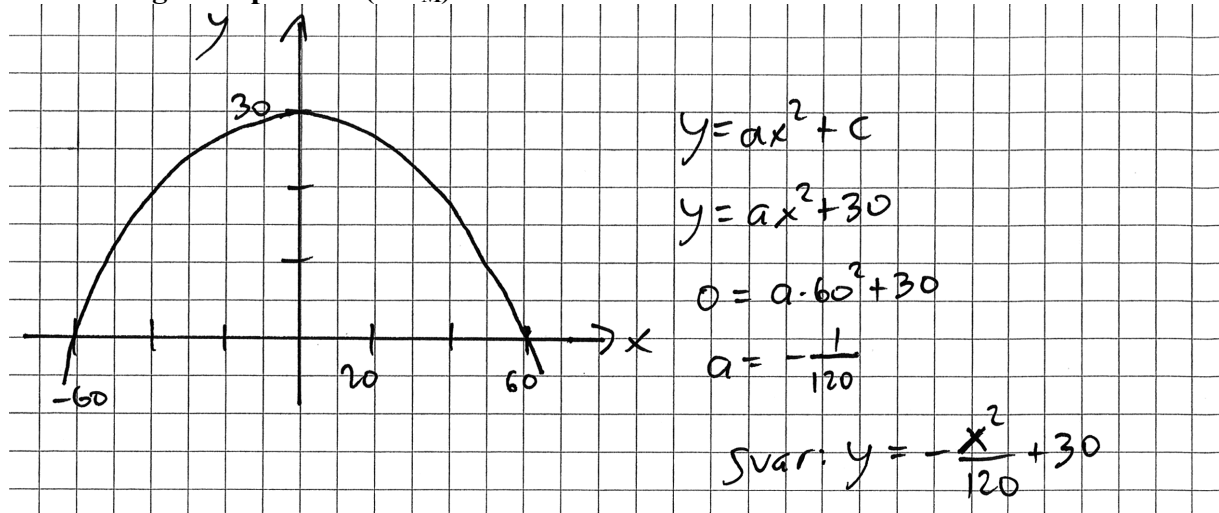 y
30
-60
20
60
x
y = ax² + c
y = ax² + 30
0 = a·60² + 30
a = -1/120
svar: y = -x²/120 + 30